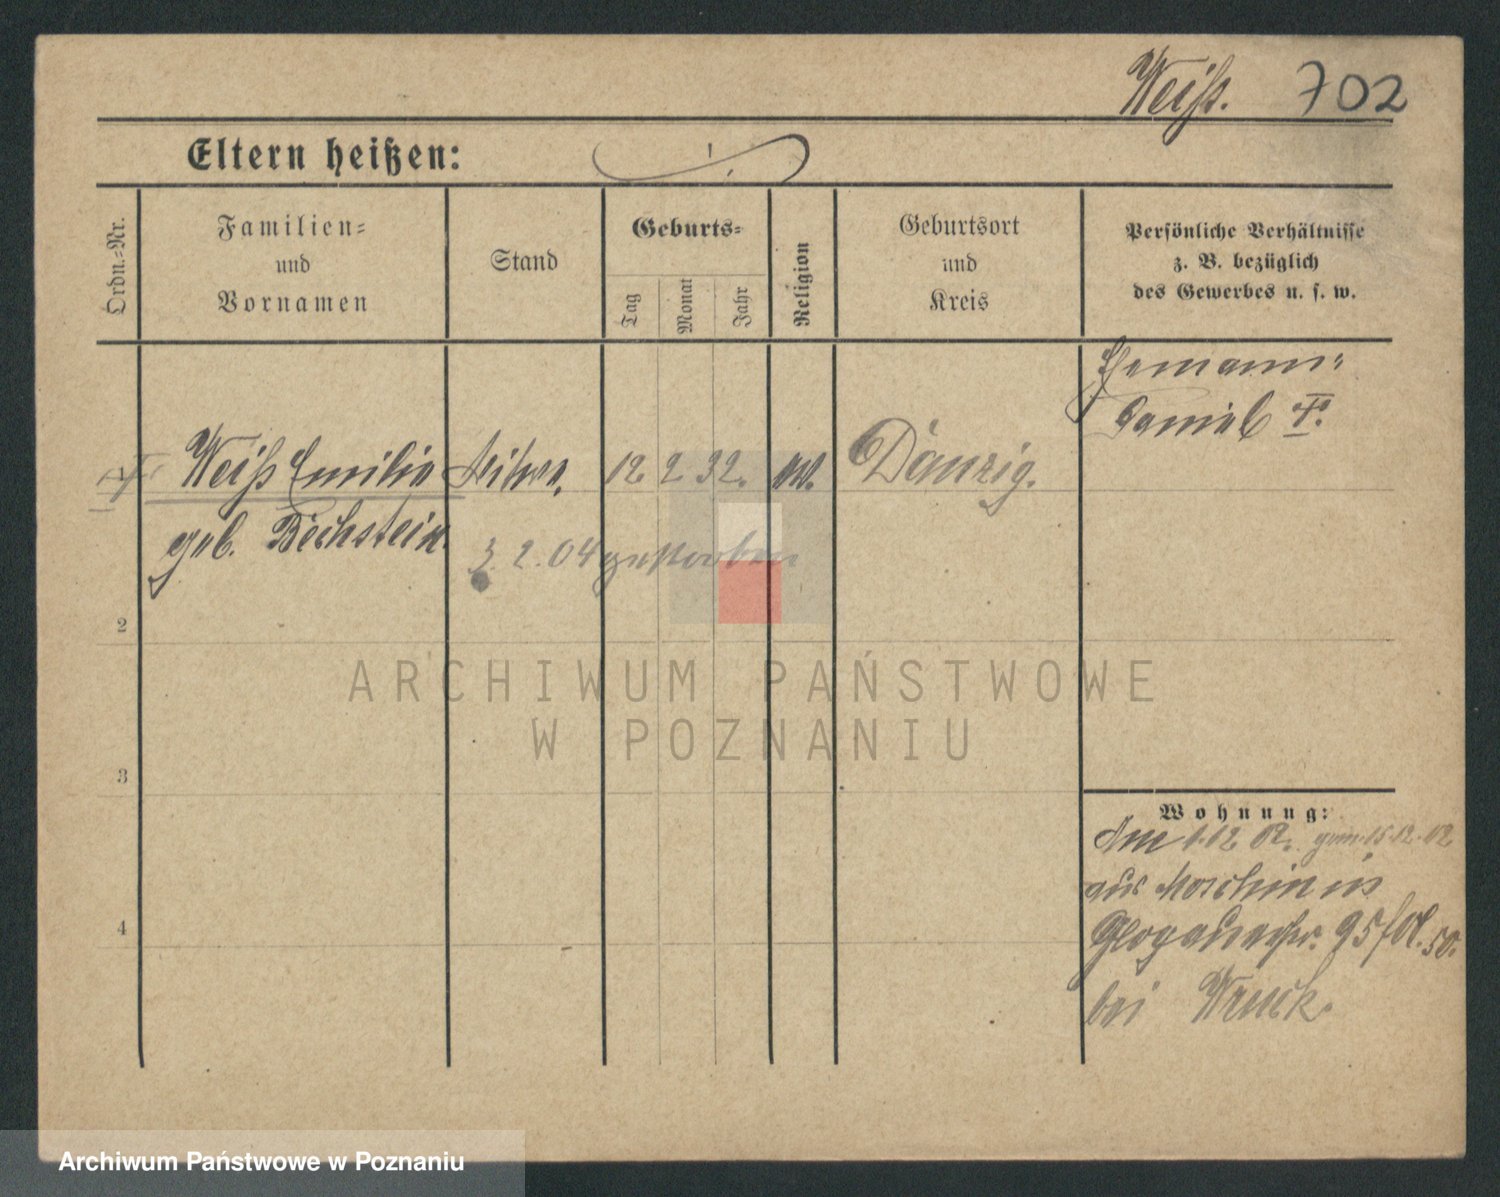 Weiß. 702
Eltern heißen:
Ordn.-Nr.
Familien-
und
Vornamen
Stand
Geburts-
Tag
Monat
Jahr
Religion
Geburtsort
und
Kreis
Persönliche Verhältnisse
z. B. bezüglich
des Gewerbes u. s. w.
Ehemann:
Daniel †.
Weiß Emilie Witwe. 12. 2. 32. ev. Danzig.
geb. Bechstein.
3. 2. 04 gestorben
2
3
4
Wohnung:
Am 1.12 02. gem. 15.12.02
aus Moschin in
Glogauerstr. 95
bei Wruck.
ARCHIWUM PAŃSTWOWE
W POZNANIU
Archiwum Państwowe w Poznaniu